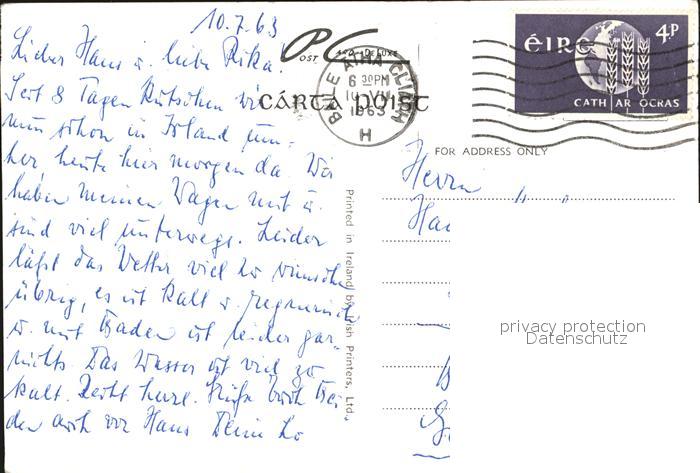 10.7.63
Lieber Hans u. liebe Rika!
Seit 8 Tagen kutschen wir
nun schon in Irland um-
her, heute hier morgen da. Wir
haben meinen Wagen mit u.
sind viel unterwegs. Leider
läßt das Wetter viel zu wünschen
übrig, es ist kalt u. regnerisch
u. mit Baden ist leider gar
nichts. Das Wasser ist viel zu
kalt. Recht herzl. Grüße
den auch von Hans
POST CARD DE LUXE
CÁRTA POIST
BAILE ÁTHA CLIATH
6 30PM
10 VII
1963
H
ÉIRE 4P
CATH AR OCRAS
FOR ADDRESS ONLY
Printed in Ireland by Irish Printers, Ltd.
Herrn
privacy protection
Datenschutz